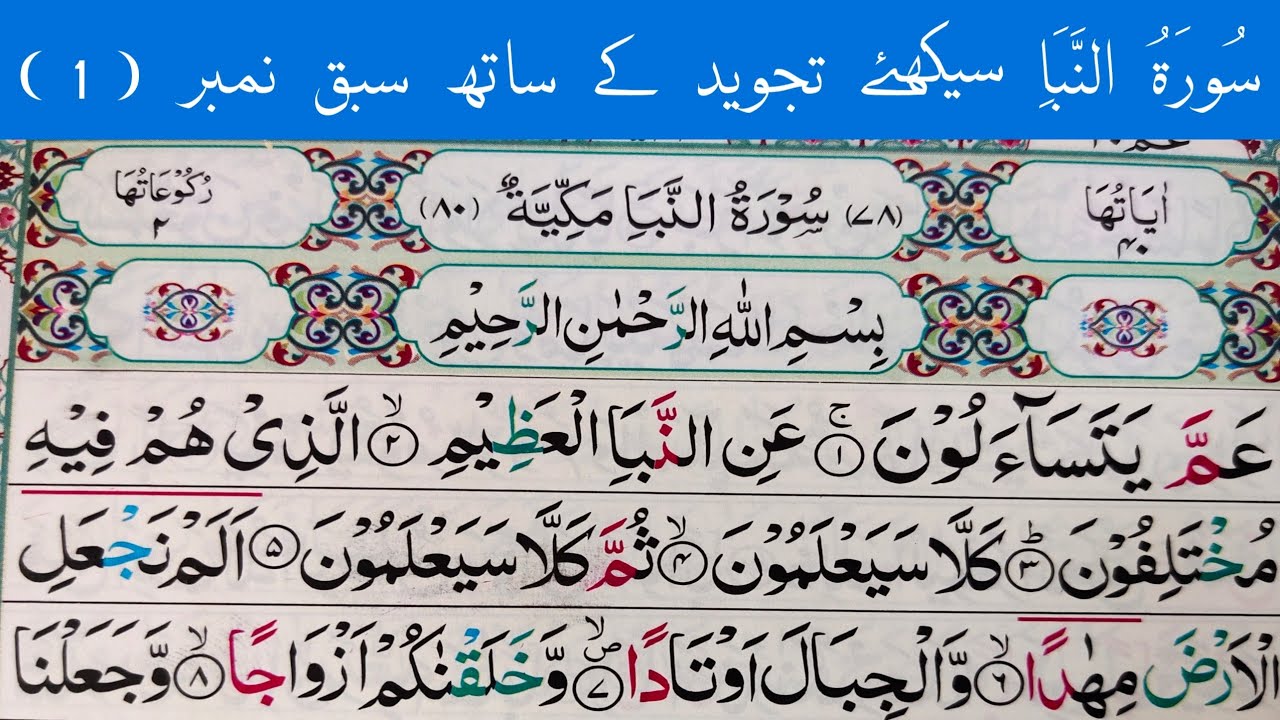 سُورَۃُ النَّبَاِ سیکھئے تجوید کے ساتھ سبق نمبر ( 1 )
اٰیَاتُهَا ۴۰
(۷۸) سُوْرَةُ النَّبَاِ مَكِّیَّةٌ (۸۰)
رُكُوْعَاتُهَا ۲
بِسْمِ اللّٰهِ الرَّحْمٰنِ الرَّحِیْمِ
عَمَّ یَتَسَآءَلُوْنَ ۚ‏﴿۱﴾ عَنِ النَّبَاِ الْعَظِیْمِ ۙ‏﴿۲﴾ الَّذِیْ هُمْ فِیْهِ
مُخْتَلِفُوْنَ ؕ‏﴿۳﴾ كَلَّا سَیَعْلَمُوْنَ ۙ‏﴿۴﴾ ثُمَّ كَلَّا سَیَعْلَمُوْنَ ﴿۵﴾ اَلَمْ نَجْعَلِ
الْاَرْضَ مِهٰدًا ۙ‏﴿۶﴾ وَّالْجِبَالَ اَوْتَادًا ۪ۙ‏﴿۷﴾ وَّخَلَقْنٰكُمْ اَزْوَاجًا ۙ‏﴿۸﴾ وَّجَعَلْنَا